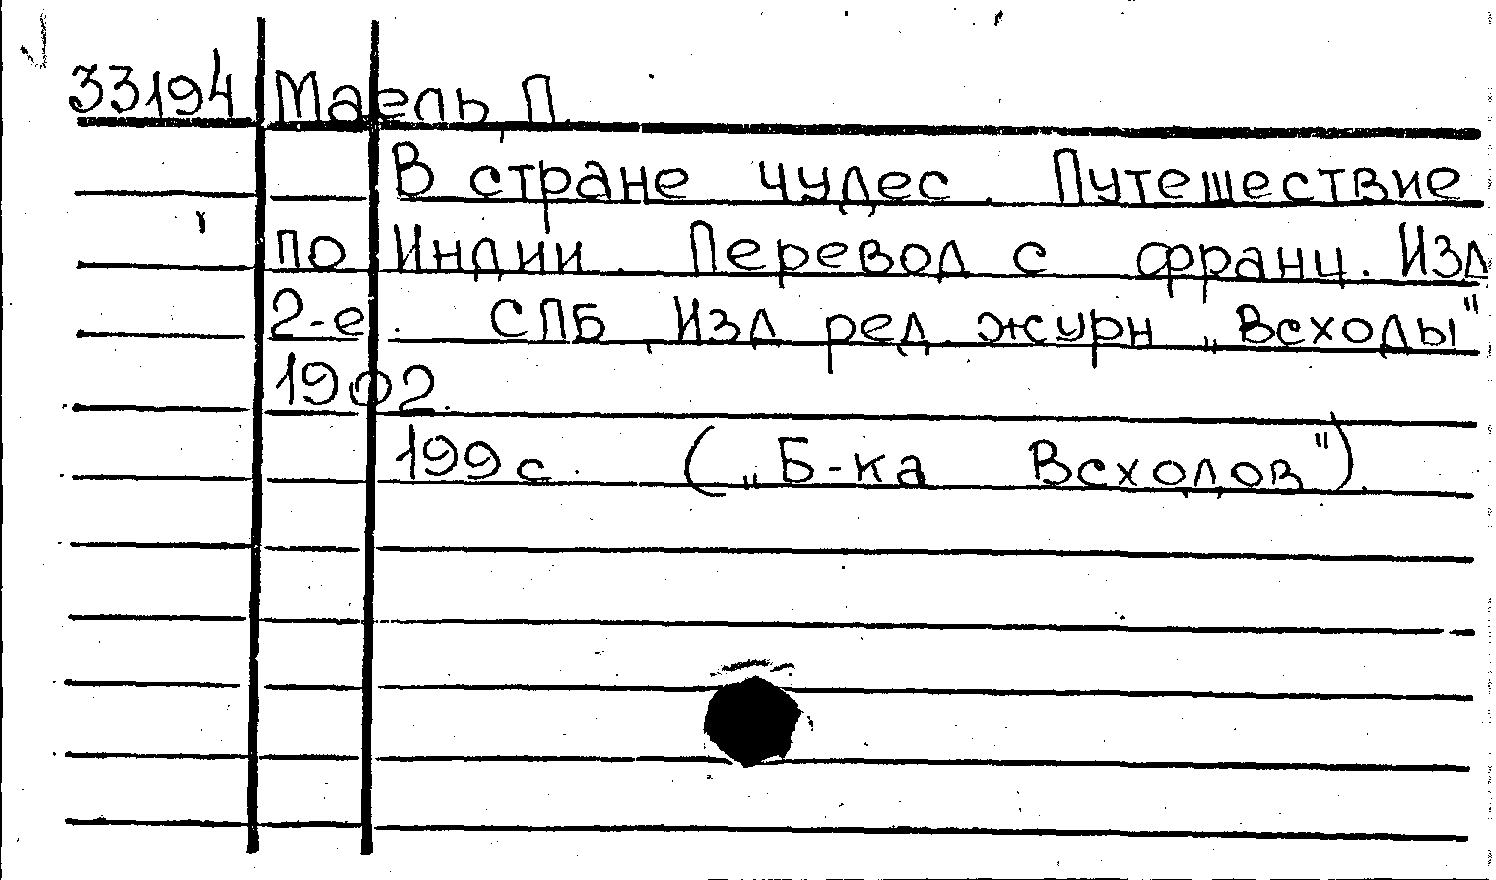 33194 Маель, П.
В стране чудес. Путешествие
по Индии. Перевод с франц. Изд
2-е. СПБ, Изд. ред. журн „Всходы"
1902.
199 с. („Б-ка Всходов").